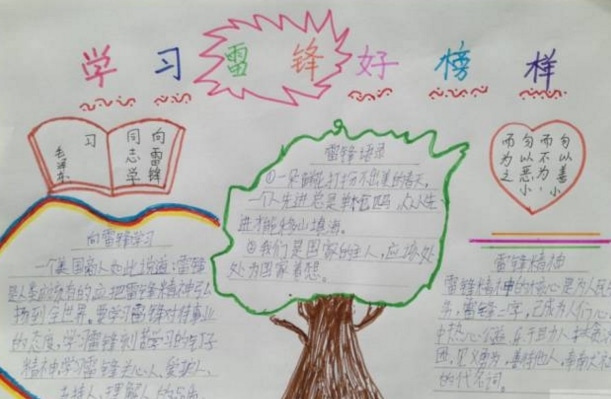 学习雷锋好榜样
向雷锋
同志学
习
毛泽东
雷锋语录
①一朵鲜花打扮不出美丽的春天,
一个人先进总是单独的,众人先
进才能移山填海。
②我们是国家的主人,应该处
处为国家着想。
勿以善小
而不为,
勿以恶小
而为之
向雷锋学习
一个美国商人如此说道:雷锋
是人类应该有的,应把雷锋精神
扬到全世界。要学习雷锋对待事业
的态度,学习雷锋刻苦学习的钉子
精神,学习雷锋关心人、爱护人、
支持人、理解人
雷锋精神
雷锋精神的核心是为人民
务,雷锋二字,已成为人们心
中热心公益、乐于助人、扶贫
困、见义勇为、善待他人、奉献
的代名词。